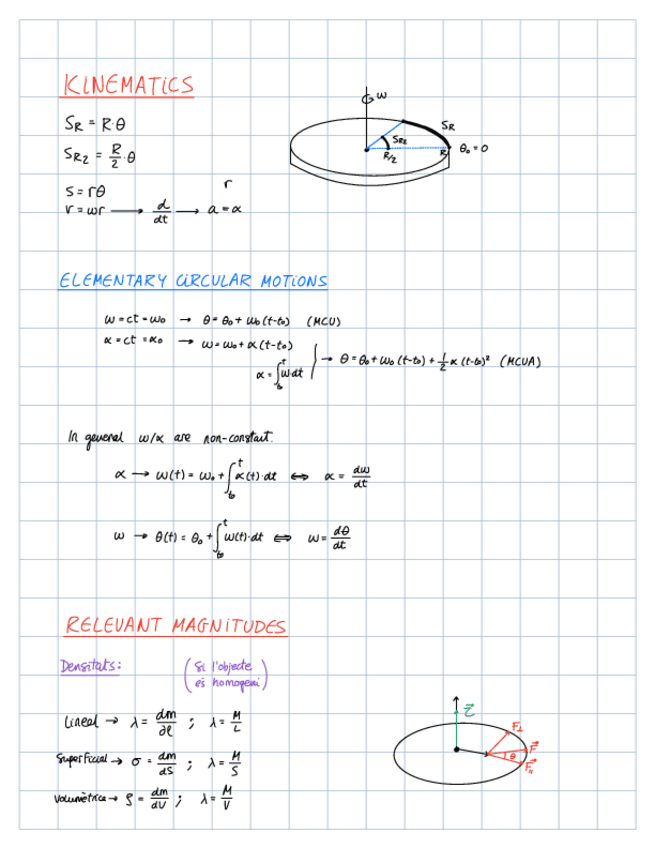 KINEMATICS
S_R = R·θ
S_R2 = R/2 · θ
s = rθ
r
r = ωr → d/dt → a = α
ω
S_R
S_R2
R/2
R
θ₀ = 0
ELEMENTARY CIRCULAR MOTIONS
ω = ct = ω₀ → θ = θ₀ + ω₀(t-t₀) (MCU)
α = ct = α₀ → ω = ω₀ + α(t-t₀)
α = ∫_t₀^t ω dt
→ θ = θ₀ + ω₀(t-t₀) + 1/2 α(t-t₀)² (MCUA)
In general ω/α are non-constant.
α → ω(t) = ω₀ + ∫_t₀^t α(t)·dt ⇔ α = dω/dt
ω → θ(t) = θ₀ + ∫_t₀^t ω(t)·dt ⇔ ω = dθ/dt
RELEVANT MAGNITUDES
Densitats: (si l'objecte
és homogeni)
Lineal → λ = dm/∂l ; λ = M/L
Superficial → σ = dm/dS ; λ = M/S
Volumètrica → ρ = dm/dV ; λ = M/V
τ⃗
F⊥
F⃗
θ
F⃗∥